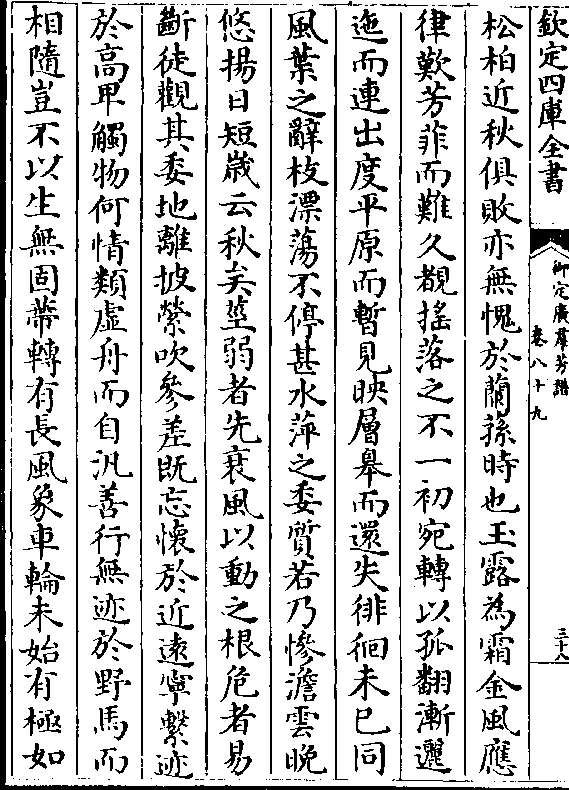 欽定四庫全書
御定廣羣芳譜
卷八十九
三十八
松柏近秋俱敗亦無愧於蘭蓀時也玉露為霜金風應
律歎芳菲而難久覩搖落之不一初宛轉以孤翻漸邐
迤而連出度平原而暫見映層臯而還失徘徊未已同
風葉之辭枝漂蕩不停甚水萍之委質若乃慘澹雲晚
悠揚日短歲云秋矣莖弱者先衰風以動之根危者易
斷徒觀其委地離披縈吹參差既忘懷於近遠寧繫迹
於高卑觸物何情類虛舟而自汎善行無迹於野馬而
相隨豈不以生無固蒂轉有長風象車輪未始有極如